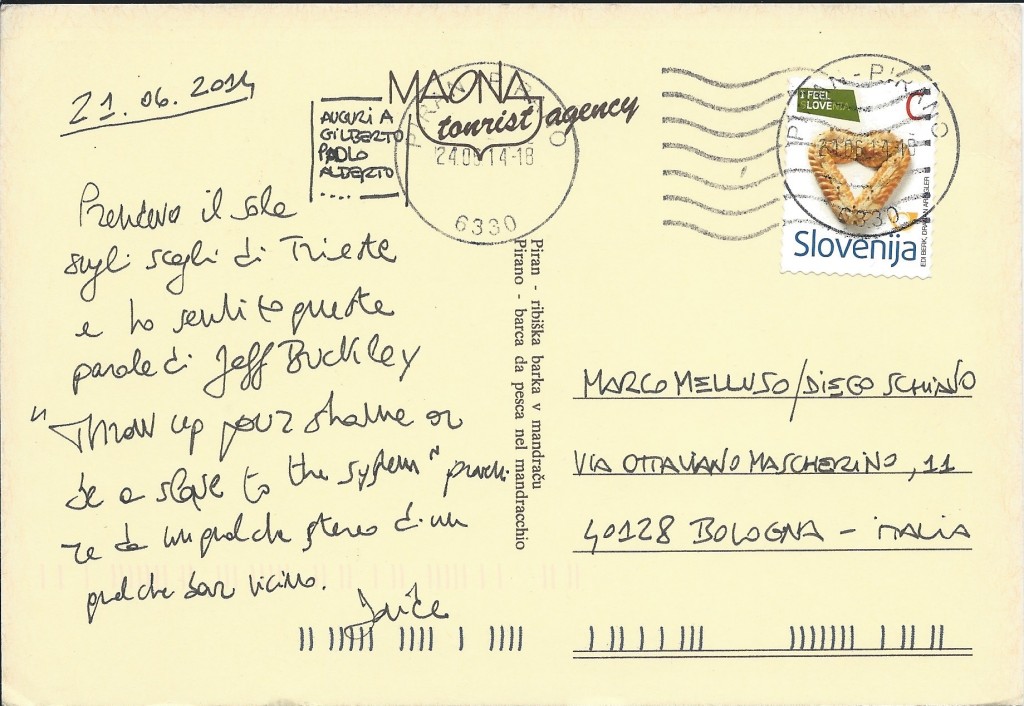 21.06.2014
MAONA
tourist agency
AUGURI A
GILBERTO
PAOLO
ALBERTO
....
PIRAN - PIRANO
24.06.14-18
6330
I FEEL
SLOVENIA
C
PIRAN - PIRANO
24.06.14-18
6330
Slovenija
EDI BERK, DRAGAN ARRIGLER
Prendevo il sole
sugli scogli di Trieste
e ho sentito queste
parole di Jeff Buckley
"Throw up your shame or
be a slave to the system"
re da un qualche stereo di un
qualche bar vicino.
Piran - ribiška barka v mandraču
Pirano - barca da pesca nel mandracchio
MARCO MELLUSO/DIEGO SCHIAVO
VIA OTTAVIANO MASCHERINO, 11
40128 BOLOGNA - ITALIA